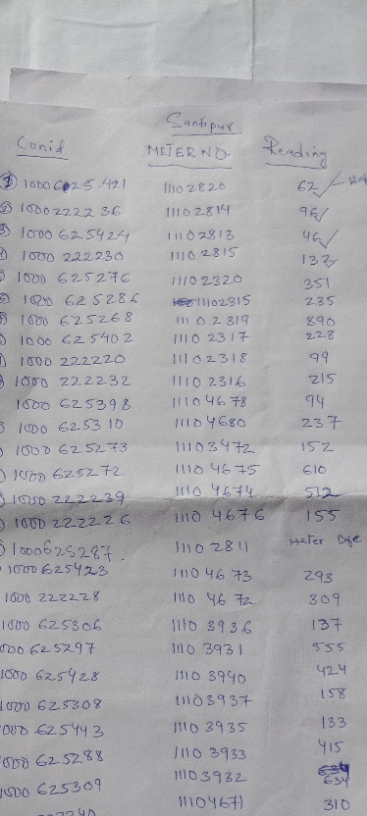 Santipur
Conid METER NO. Reading
1000625421 11102820 62
1000222236 11102814 96
1000625424 11102813 46
1000 222230 11102815 132
1000 625276 11102320 351
1000 625286 11102315 235
1000 625268 11102319 890
1000 625402 11102317 228
1000 222220 11102318 99
1000 222232 11102316 215
1000 625398 11104678 94
1000 625310 11104680 237
1000 625273 11103472 152
1000 625272 11104675 610
1000 222239 11104674 512
1000 222226 11104676 155
1000625287. 11102811 Meter
1000625423 11104673 293
1000 222228 11104672 309
1000 625306 11103936 137
1000 625297 11103931 555
1000 625428 11103940 424
1000 625308 11103937 158
1000 625443 11103935 133
1000 625288 11103933 415
1000 625309 11103932 634
11104671 310